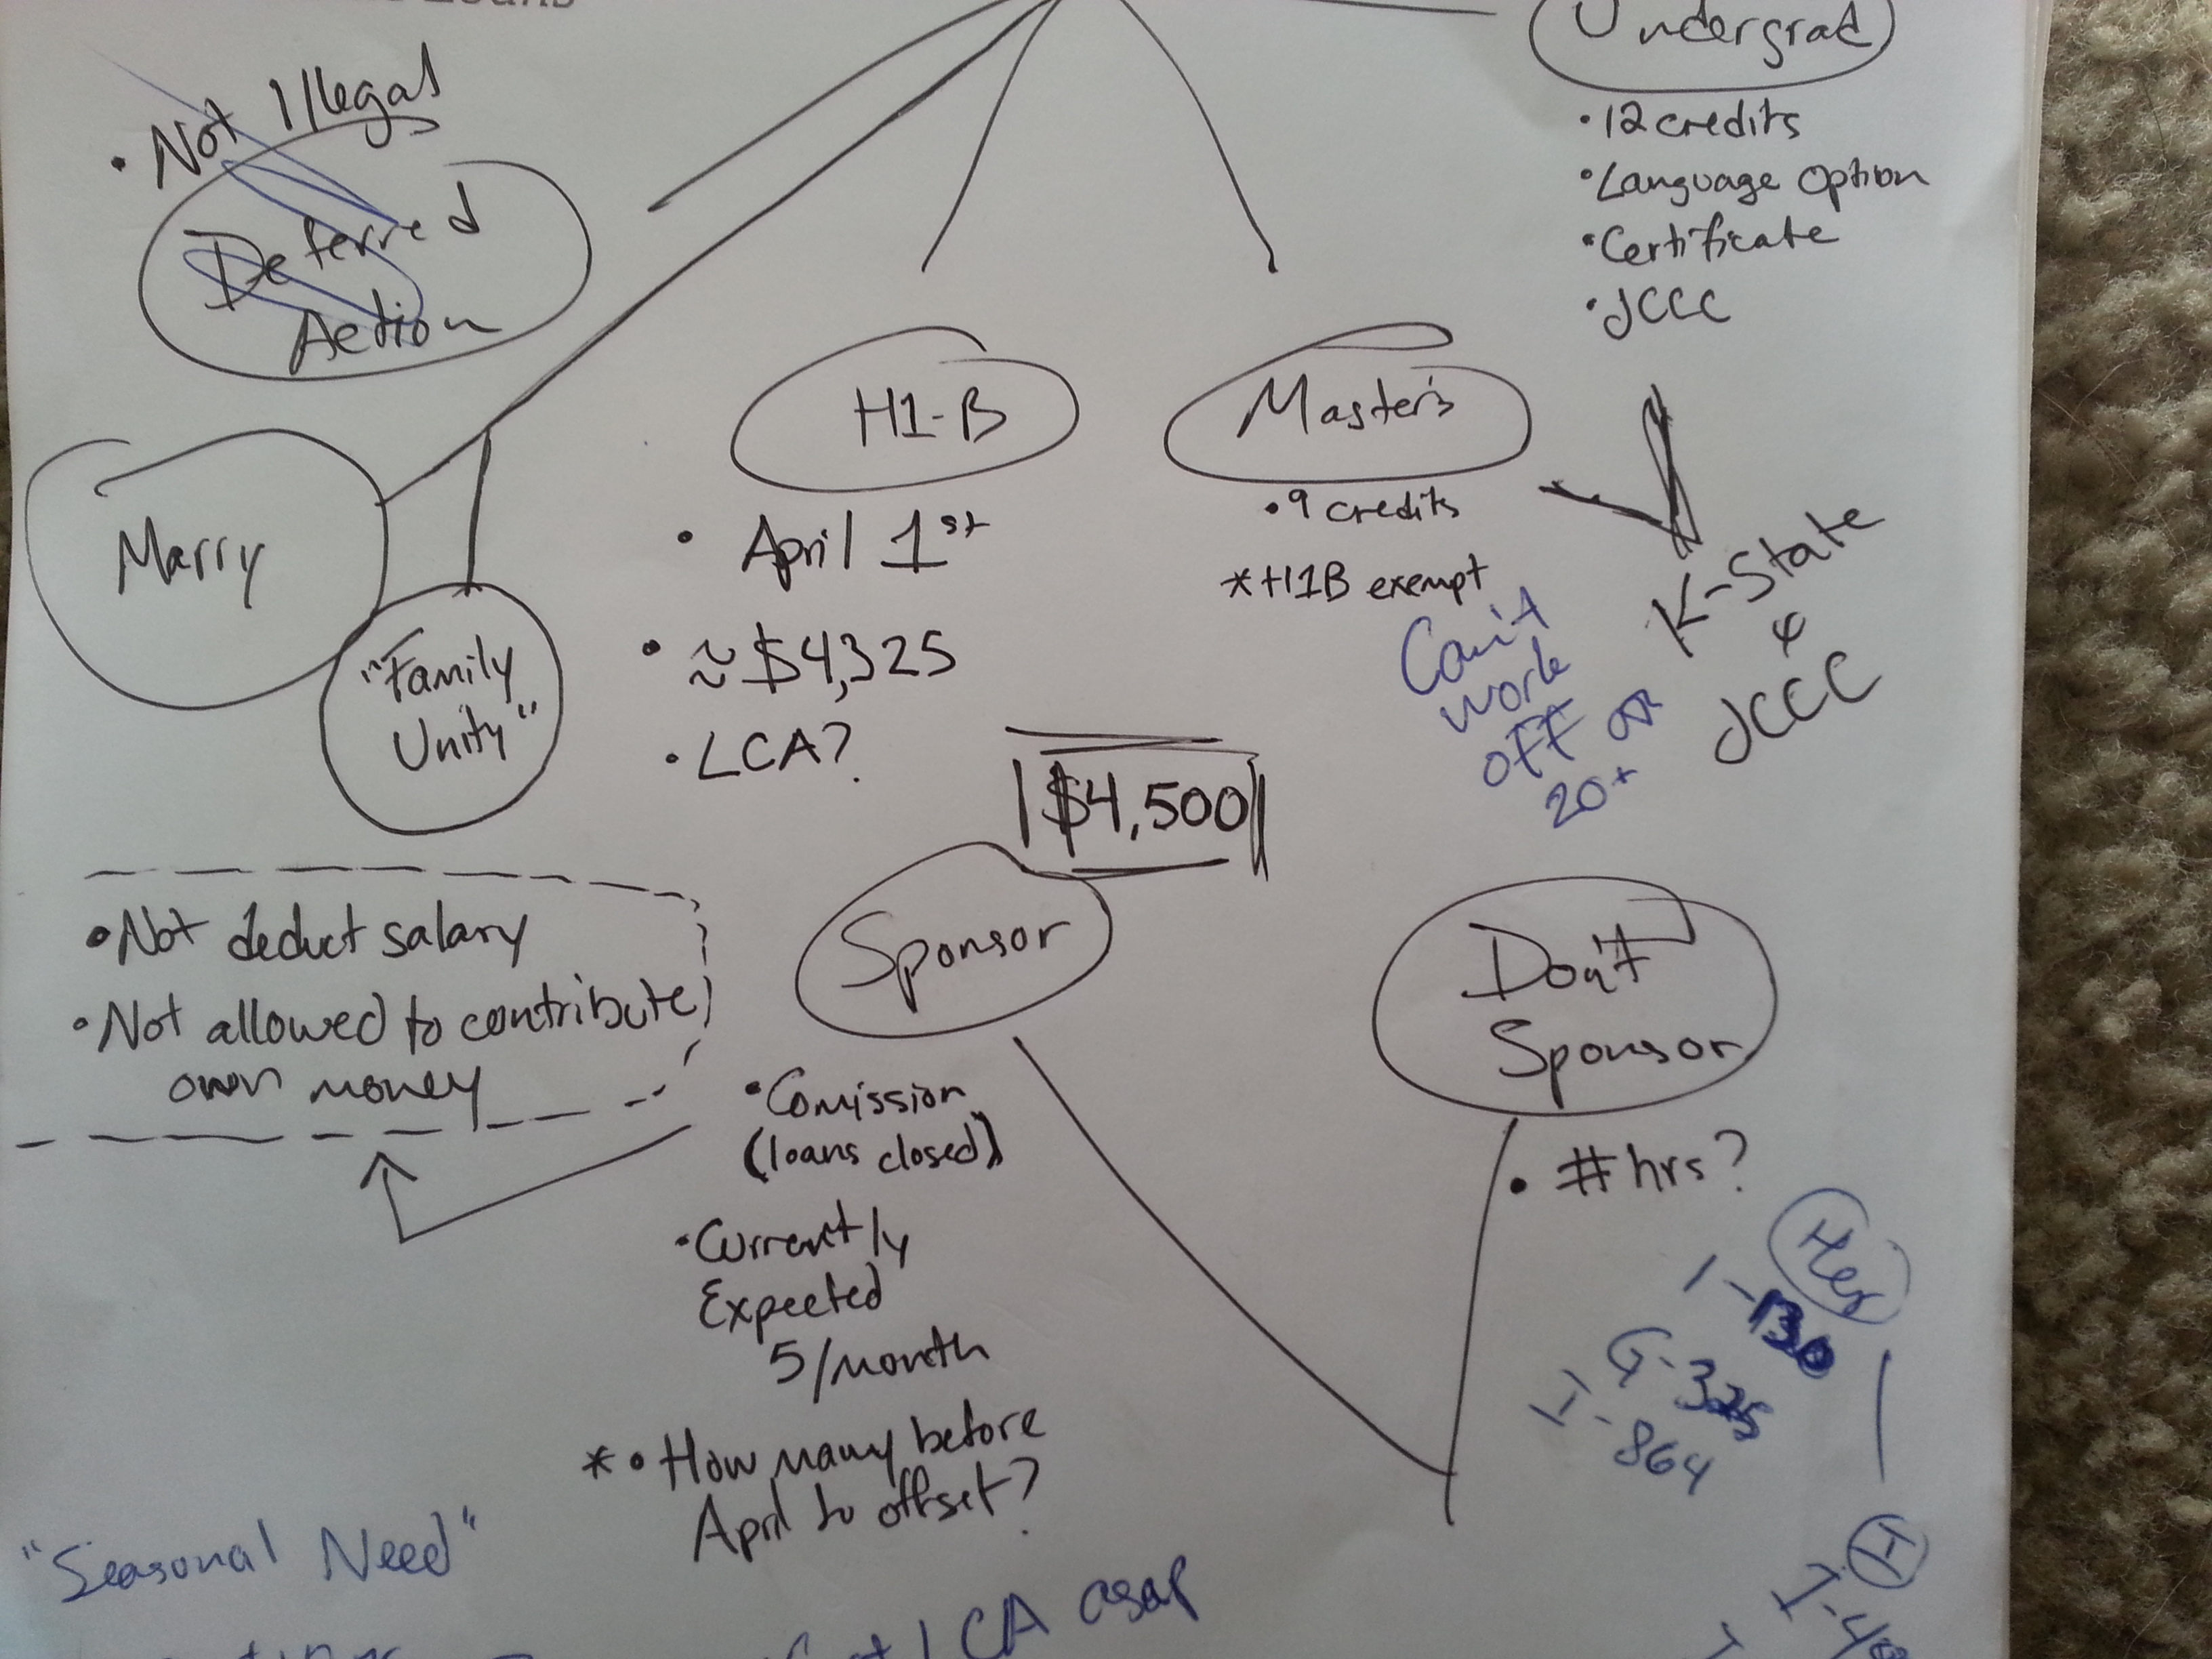 Loans
Undergrad
• 12 credits
• Language Option
• Certificate
• JCCC
• Not Illegal
Deferred
Action
Marry
"Family
Unity"
H1-B
• April 1st
• ≈ $4,325
• LCA?
Master's
• 9 credits
* H1B exempt
Can't
work
off
20+
K-State
JCCC
$4,500
• Not deduct salary
• Not allowed to contribute
own money
Sponsor
• Comission
(loans closed)
• Currently
Expected
5/month
* • How many before
April to offset?
Don't
Sponsor
• # hrs?
Her
I-130
G-325
I-864
"Seasonal Need"
LCA asap